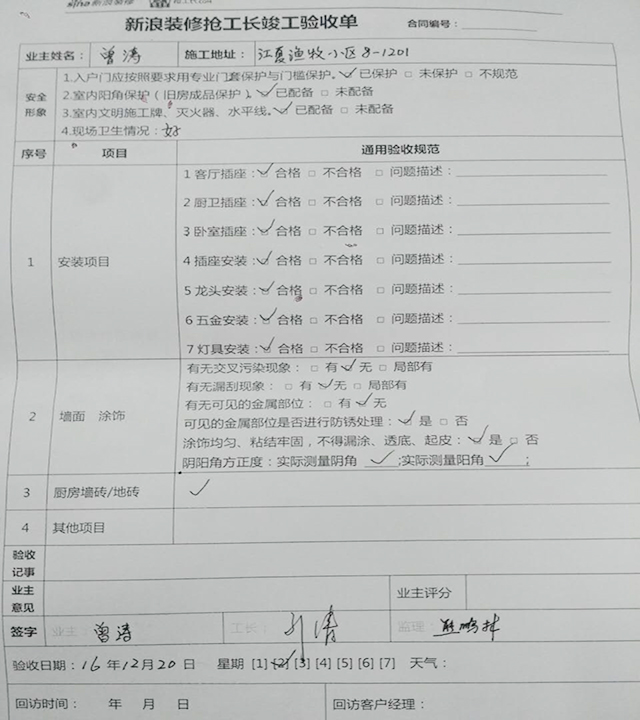 sina 新浪装修 抢工长
新浪装修抢工长竣工验收单 合同编号：
业主姓名： 曾涛 施工地址： 江夏渔牧小区8-1201
安全形象
1.入户门应按照要求用专业门套保护与门槛保护。☑已保护 □ 未保护 □ 不规范
2.室内阳角保护（旧房成品保护）☑已配备 □ 未配备
3.室内文明施工牌、灭火器、水平线。☑已配备 □ 未配备
4.现场卫生情况：好
序号 项目 通用验收规范
1 安装项目
1 客厅插座：☑合格 □ 不合格 □ 问题描述：
2 厨卫插座：☑合格 □ 不合格 □ 问题描述：
3 卧室插座：☑合格 □ 不合格 □ 问题描述：
4 插座安装：☑合格 □ 不合格 □ 问题描述：
5 龙头安装：☑合格 □ 不合格 □ 问题描述：
6 五金安装：☑合格 □ 不合格 □ 问题描述：
7 灯具安装：☑合格 □ 不合格 □ 问题描述：
2 墙面 涂饰
有无交叉污染现象： □ 有☑无 □ 局部有
有无漏刮现象： □ 有☑无 □ 局部有
有无可见的金属部位： □ 有☑无
可见的金属部位是否进行防锈处理：☑是 □ 否
涂饰均匀、粘结牢固，不得漏涂、透底、起皮：☑是 □ 否
阴阳角方正度：实际测量阴角 ✓ ;实际测量阳角 ✓ ;
3 厨房墙砖/地砖 ✓
4 其他项目
验收记事
业主意见 业主评分
签字 业主： 曾涛 工长： 清 监理： 熊鹏林
验收日期：16年12月20日 星期 [1] [2] [3] [4] [5] [6] [7] 天气：
回访时间： 年 月 日 回访客户经理：